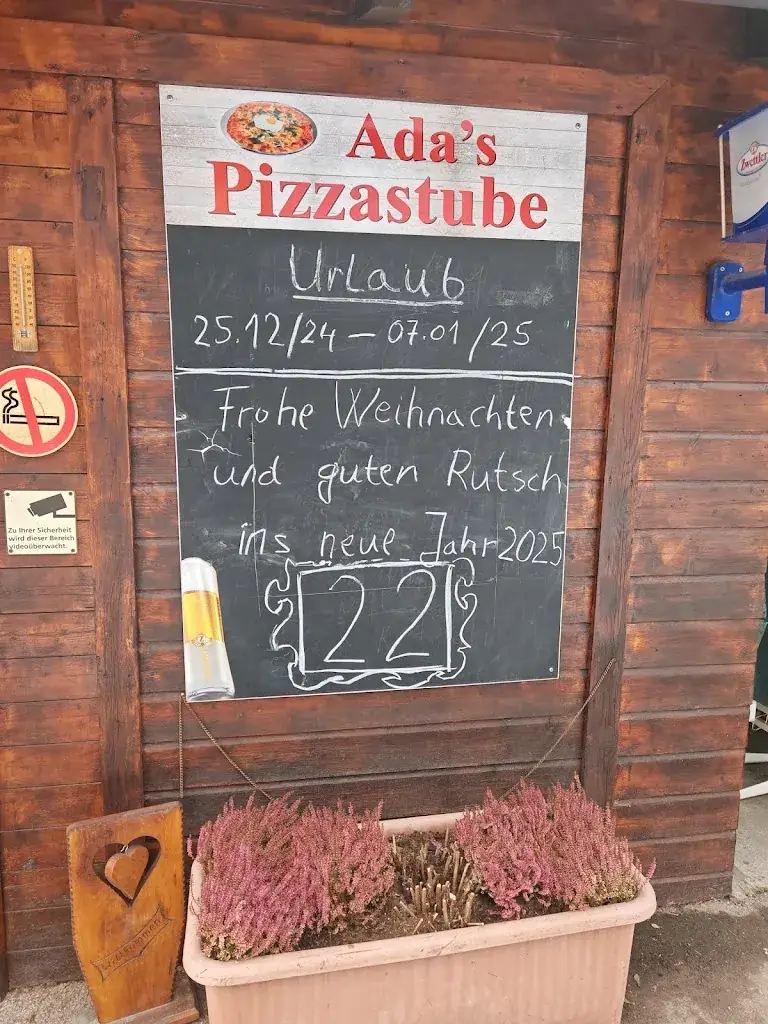 Ada's
Pizzastube
Urlaub
25.12/24 – 07.01/25
Frohe Weihnachten
und guten Rutsch
ins neue Jahr 2025
22
Zwettler
Zu Ihrer Sicherheit
wird dieser Bereich
videoüberwacht.